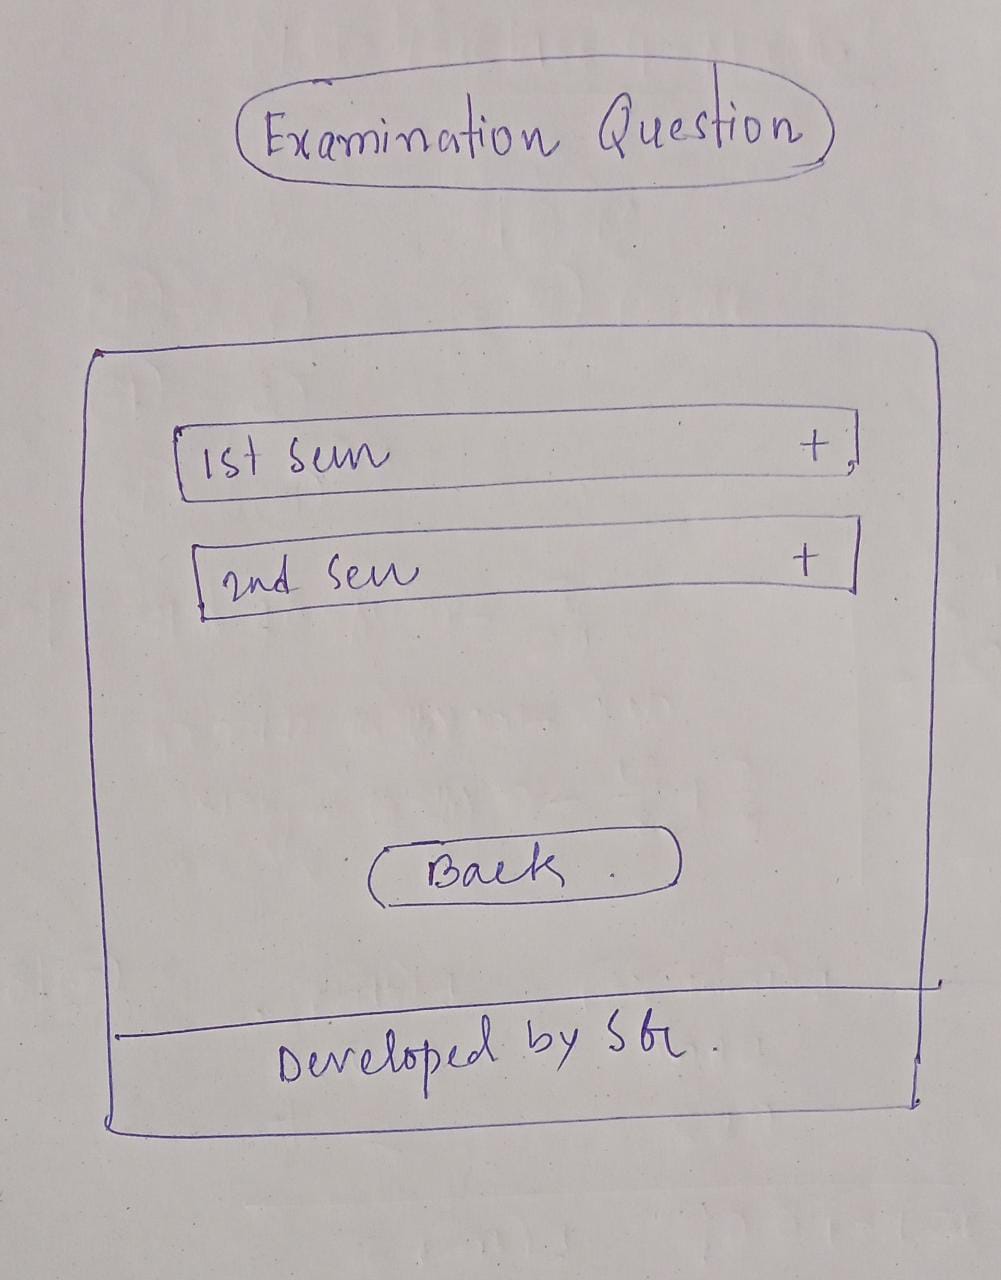 Examination Question
1st Sem +
2nd Sem +
Back
Developed by